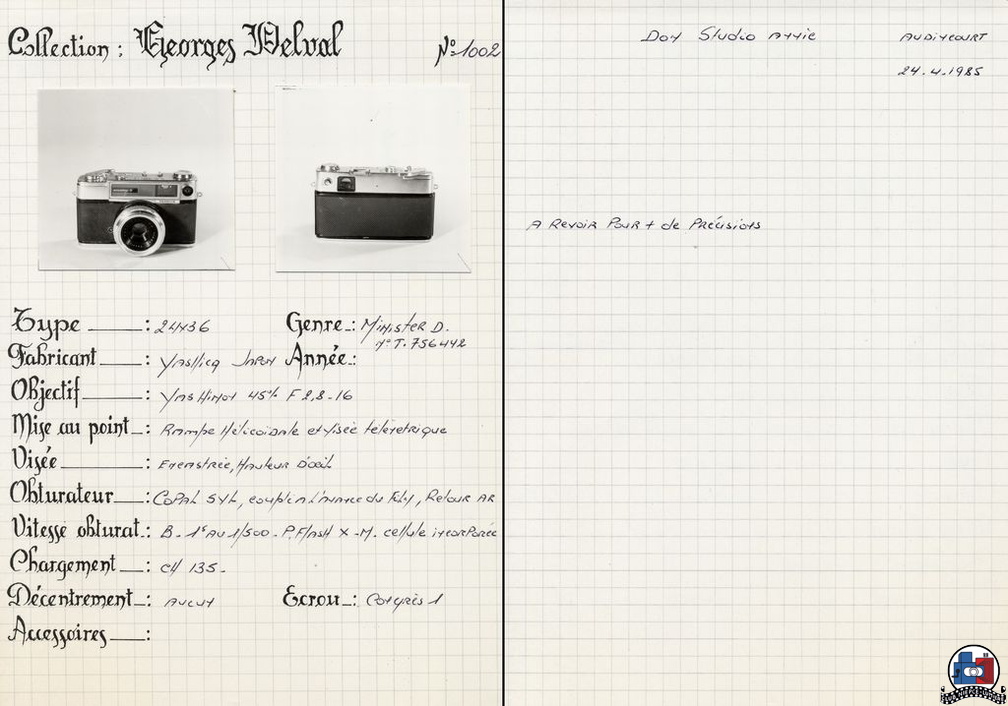 Collection : Georges Delval N° 1002
Type : 24x36 Genre : Minister D.
N° T. 756442
Fabricant : Yashica Japon Année :
Objectif : Yashinon 45 F 2,8-16
Mise au point : Rampe Hélicoïdale et visée télémétrique
Visée : Fenestrée, Hauteur D'œil
Obturateur : Copal SVL, couplé à l'avance du Film, Retour AR
Vitesse obturat. : B - 1s Au 1/500 - P. Flash X - M. cellule incorporée
Chargement : CH 135 -
Décentrement : Aucun Ecrou : Congrès 1
Accessoires :
Don Studio Annie AUDINCOURT
24.4.1985
A Revoir Pour + de Précisions